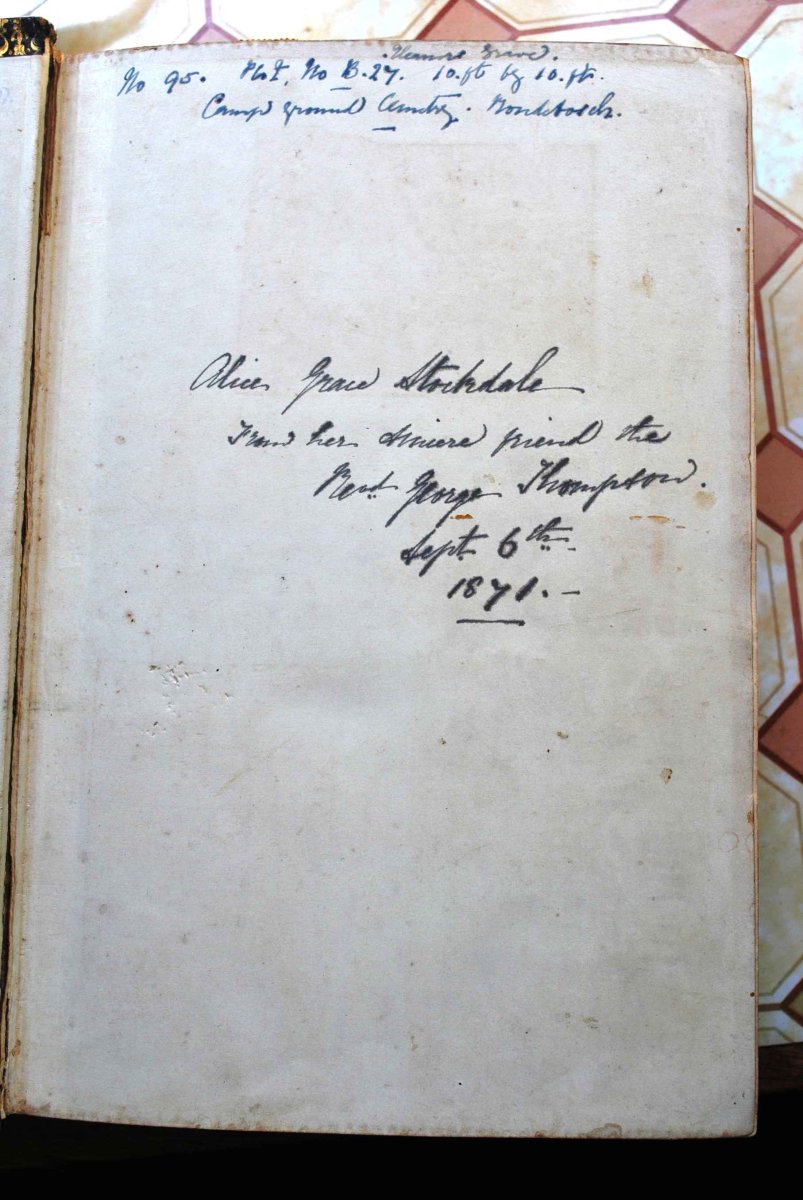 Grave.
No 95. Plot, No B.27. 10.ft by 10.ft.
Camp ground Cemetry. Rondebosch.
Alice Grace Stockdale
From her sincere friend the
Revd. George Thompson.
Sept. 6th
1871.-